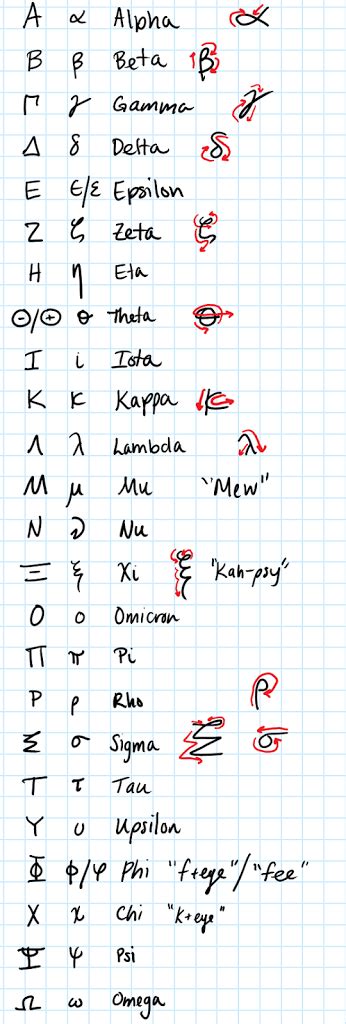 Α α Alpha α
Β β Beta β
Γ γ Gamma γ
Δ δ Delta δ
Ε ϵ/ε Epsilon
Ζ ζ Zeta ζ
Η η Eta
Θ/⊕ θ Theta θ
Ι i Iota
Κ κ Kappa κ
Λ λ Lambda λ
Μ μ Mu "Mew"
Ν ν Nu
Ξ ξ Xi ξ "Kah-psy"
Ο ο Omicron
Π π Pi
Ρ ρ Rho ρ
Σ σ Sigma Σ σ
Τ τ Tau
Υ υ Upsilon
Φ ϕ/φ Phi "f+eye"/"fee"
Χ χ Chi "k+eye"
Ψ ψ Psi
Ω ω Omega